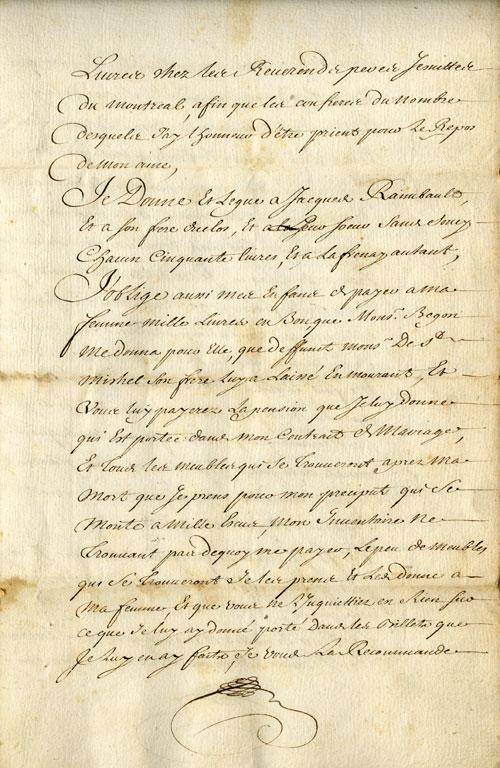 Livres chez les Reverends peres Jesuittes
du Montreal, afin que les confreres du Nombre
desquels J'ay L'honneur d'être prient pour Le Repos
de Mon ame,
Je Donne Et Legue a Jacques Raimbault,
Et a son frere duclos, Et a sa sœur sans soucy
Chacun Cinquante livres, Et a Lafrenay autant,
J'oblige aussi mes Enfans de payer a ma
femme mille Livres en Bon que Monsr. Begon
me donna pour Elle, que deffunct monsr. De St.
Mishel son frere Luy a Laissé En mourant, Et
Vous luy payerez La pension que Je luy donne
qui Est portée dans mon Contrait de Mariage,
Et tous les meubles qui se trouveront aprez Ma
Mort que Je prens pour mon preciput qui Se
Monte a mille livres, mon Inventaire Ne
trouvant pas dequoy me payer, Le peu de meubles
qui Se trouveront Je les prens Et Les donne a
Ma femme Et que vous ne L'Inquiettiez en Rien sur
ce que Je luy ay donné porté dans les Billets que
Je Luy en ay faits, Je vous La Recommande